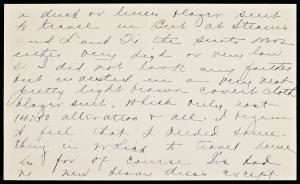 a duck or linen blazer suit
to travel in Cost at Stearns
and L and T's the suits was
either very high or very low
so I did not look any farther
but invested in a very neat
pretty light brown covert cloth
blazer suit, which only cost
14.50 alteration & all. I began
to feel that I needed some-
thing in which to travel home
in for of course I've had
no new dress except